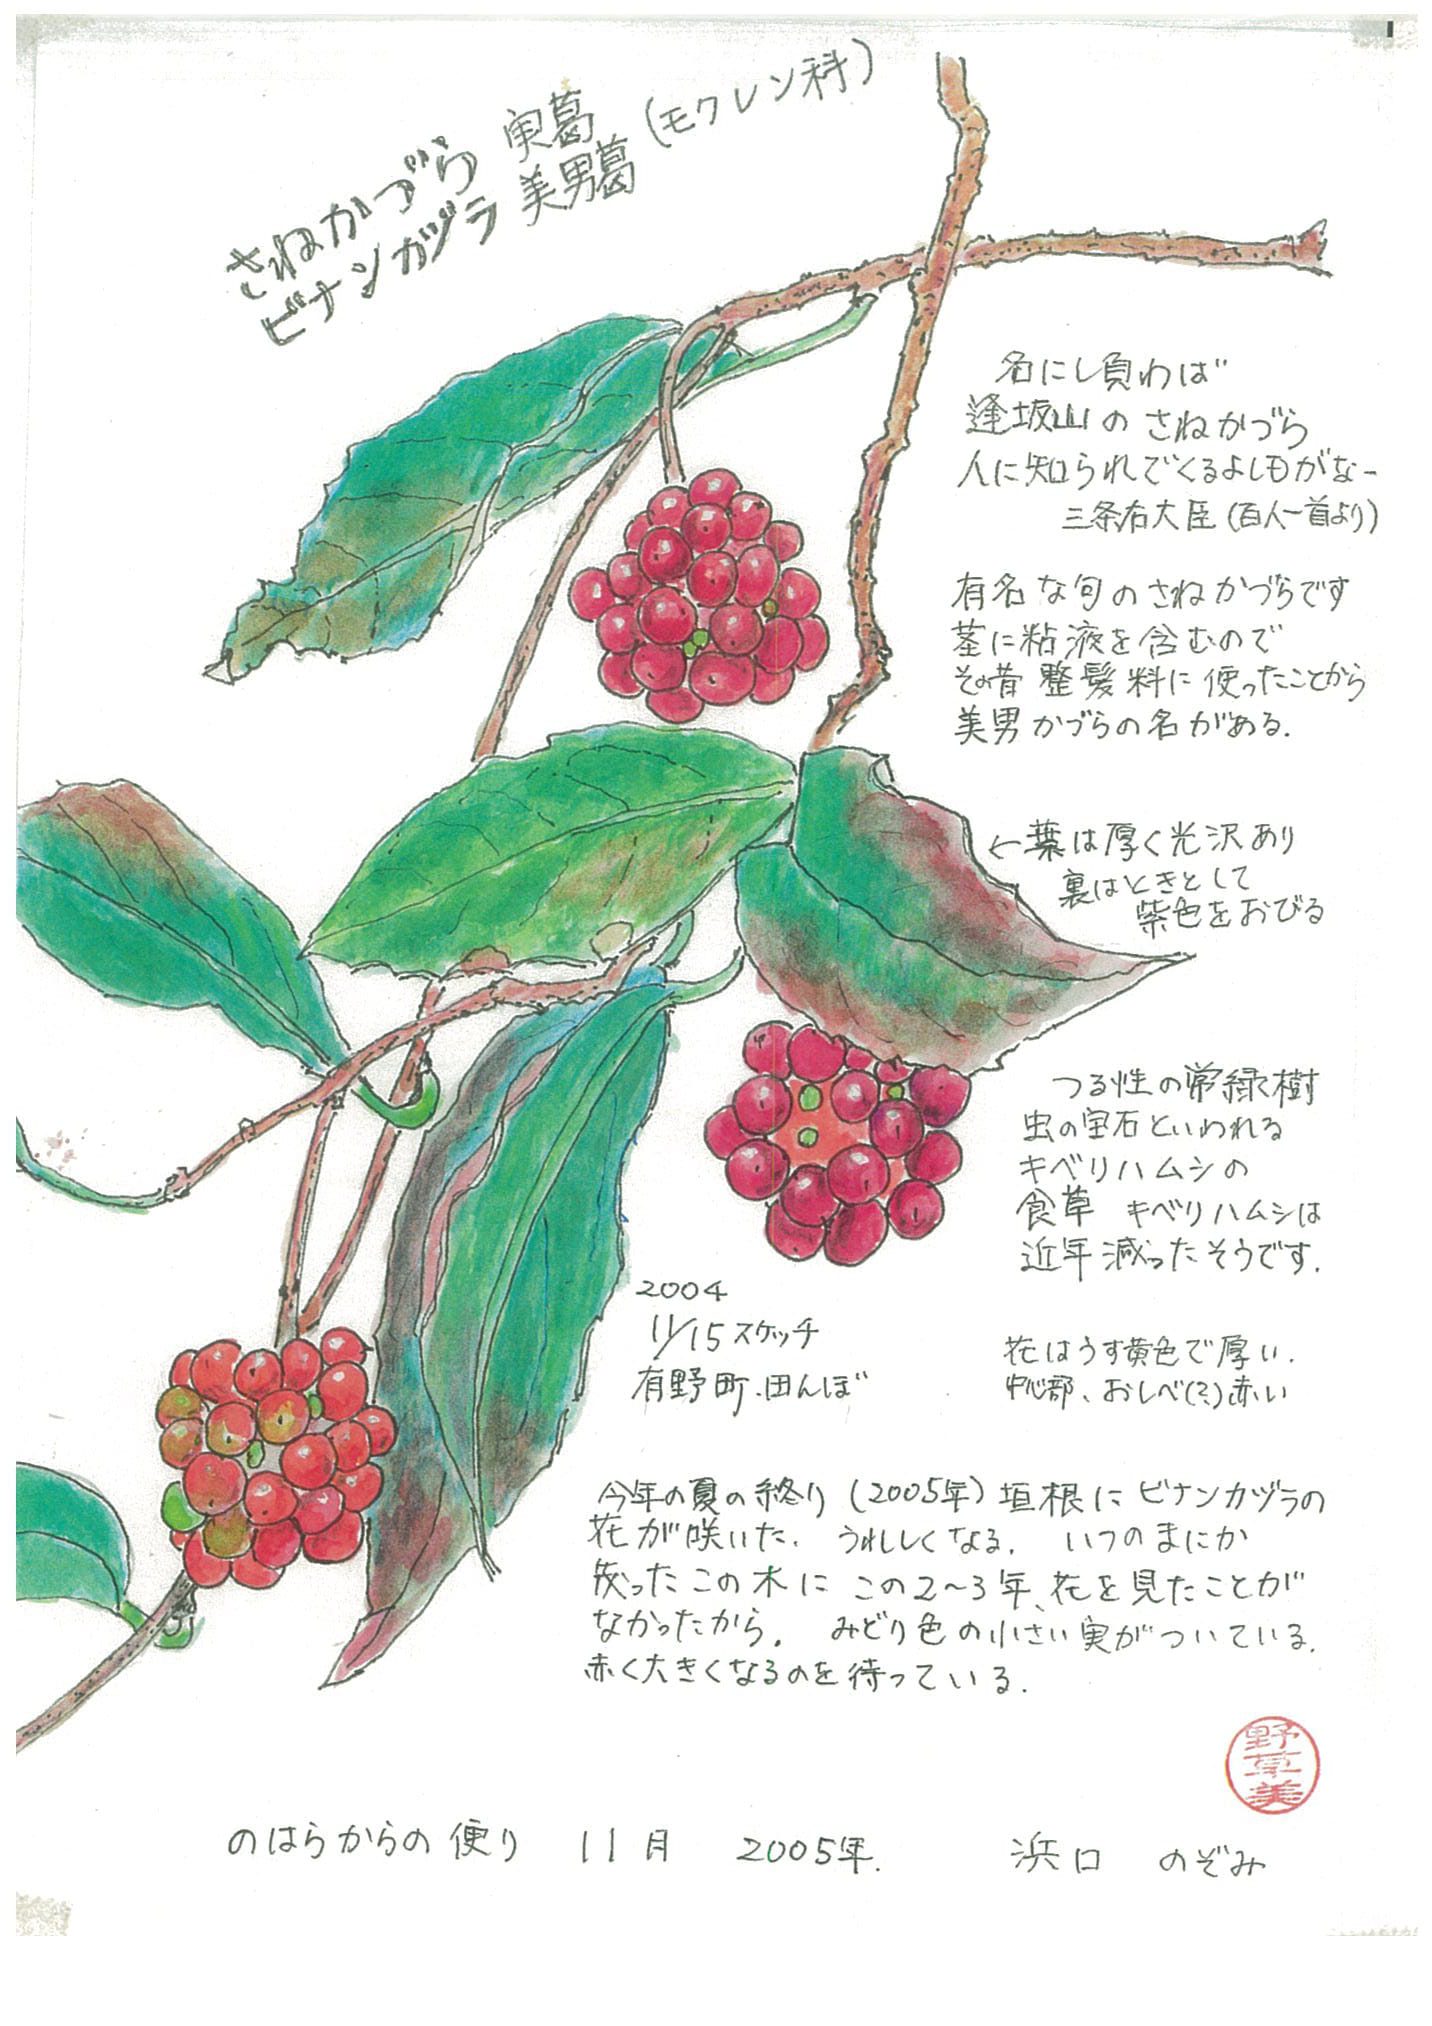 さねかづら 実葛
ビナンカヅラ 美男葛 (モクレン科)
名にし負わば
逢坂山の さねかづら
人に知られでくるよしもがな-
三条右大臣 (百人一首より)
有名な句のさねかづらです
茎に粘液を含むので
その昔 整髪料に使ったことから
美男かづらの名がある.
←葉は厚く光沢あり
裏はときとして
紫色をおびる
つる性の常緑樹
虫の宝石といわれる
キベリハムシの
食草 キベリハムシは
近年減ったそうです.
2004
11/15スケッチ
有野町.田んぼ
花はうす黄色で厚い.
中心部、おしべ(?)赤い
今年の夏の終り (2005年) 垣根に ビナンカヅラの
花が咲いた. うれしくなる. いつのまにか
茂ったこの木に この2~3年、花を見たことが
なかったから. みどり色の小さい実がついている.
赤く大きくなるのを待っている.
野草美
のはらからの便り 11月 2005年. 浜口 のぞみ